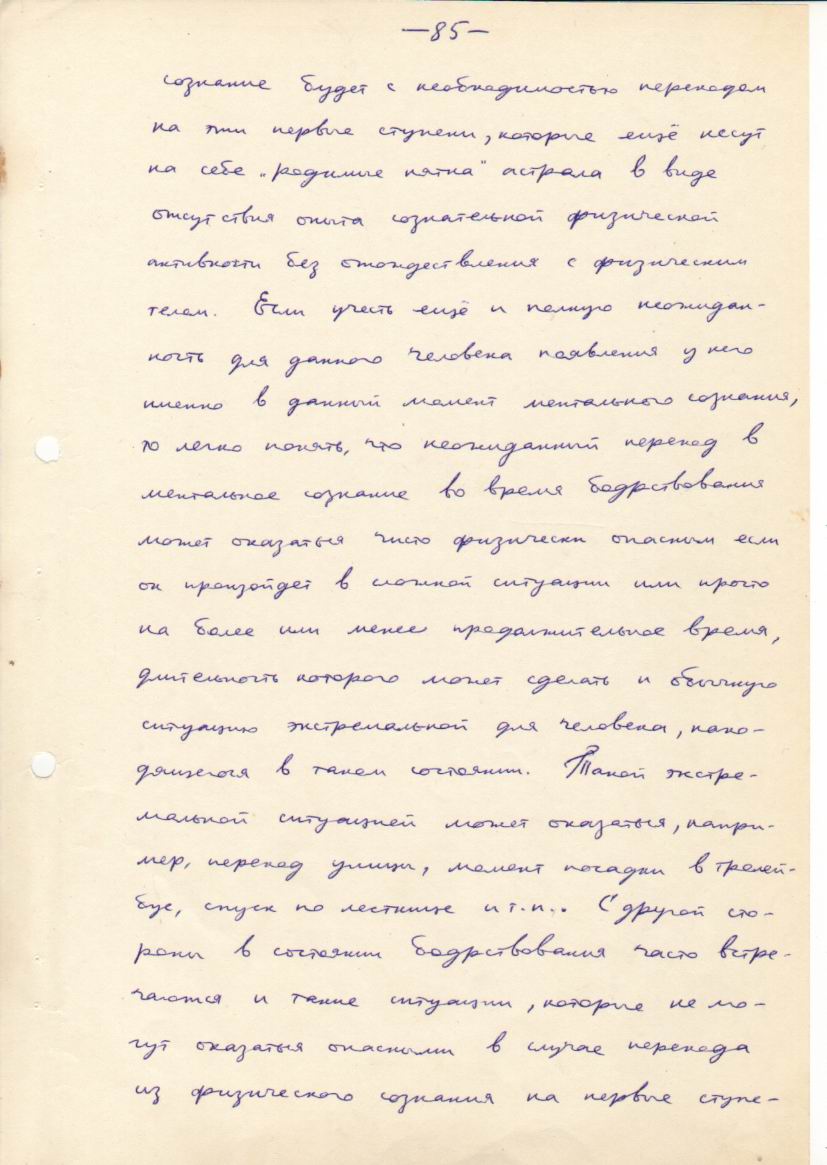 —85—
сознание будет с необходимостью переходом
на эти первые ступени, которые ещё несут
на себе „родимые пятна" астрала в виде
отсутствия опыта сознательной физической
активности без отождествления с физическим
телом. Если учесть ещё и полную неожидан-
ность для данного человека появления у него
именно в данный момент ментального сознания,
то легко понять, что неожиданный переход в
ментальное сознание во время бодрствования
может оказаться чисто физически опасным если
он произойдет в сложной ситуации или просто
на более или менее продолжительное время,
длительность которого может сделать и обычную
ситуацию экстремальной для человека, нахо-
дящегося в таком состоянии. Такой экстре-
мальной ситуацией может оказаться, напри-
мер, переход улицы, момент посадки в тролей-
бус, спуск по лестнице и т.п.. С другой сто-
роны в состоянии бодрствования часто встре-
чаются и такие ситуации, которые не мо-
гут оказаться опасными в случае перехода
из физического сознания на первые ступе-